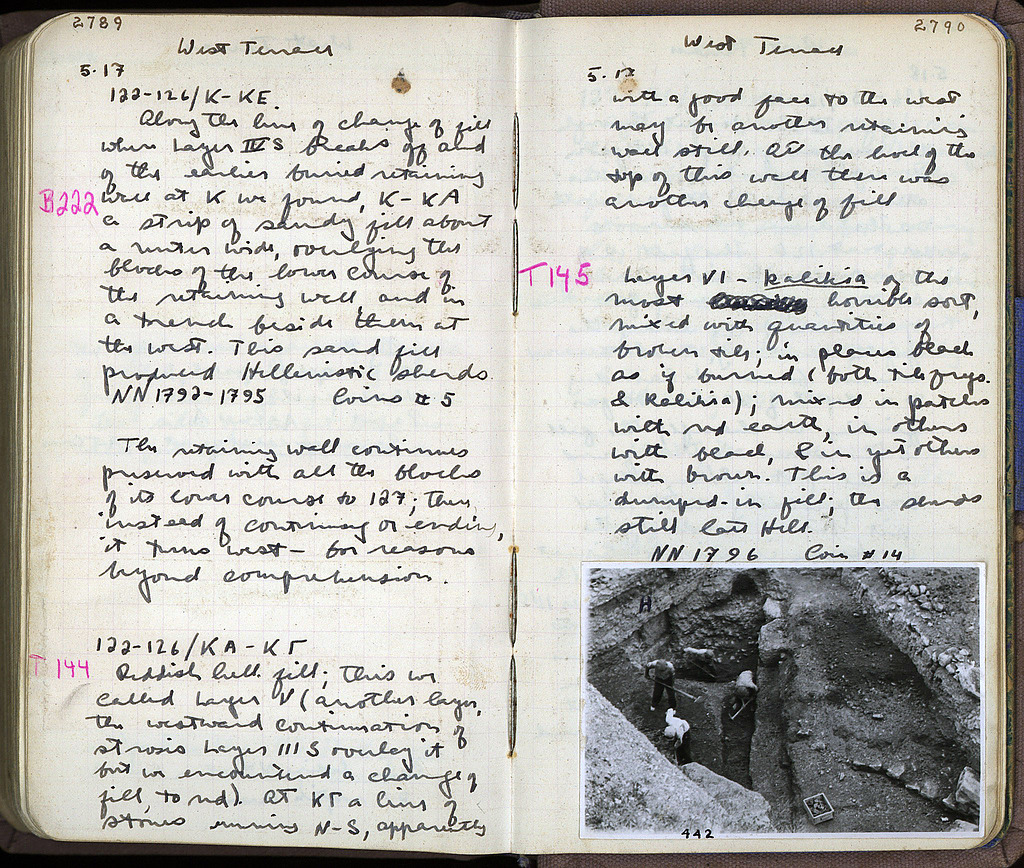 2789
West Terrace
5.17
122-126/K-KE.
Along the line of change of fill
where Layer III S breaks off and
of the earlier buried retaining
B222
wall at K we found, K-KA
a strip of sandy fill about
a meter wide, overlying the
blocks of the lower course of
the retaining wall, and in
a trench beside them at
the west. This sand fill
produced Hellenistic sherds.
NN 1792-1795 Coins # 5
The retaining wall continues
preserved with all the blocks
of its lower course to 127; then,
instead of continuing or ending,
it turns west – for reasons
beyond comprehension.
122-126/KA-KΓ
T 144
Reddish fill; this we
called Layer V (another layer,
the westward continuation of
strosis Layer III S overlay it
but we encountered a change of
fill, to red). At KΓ a line of
stones running N-S, apparently
2790
West Terrace
5.17
with a good face to the west
may be another retaining
wall still. At the level of the
top of this wall there was
another change of fill
T 145
Layer VI – kalikia of the
most horrible sort,
mixed with quantities of
broken tile; in places black
as if burned (both tile frgs.
& kalikia); mixed in patches
with red earth, in others
with black, & in yet others
with brown. This is a
dumped-in fill; the sherds
still late Hell.
NN 1796 Coin #14
H
442